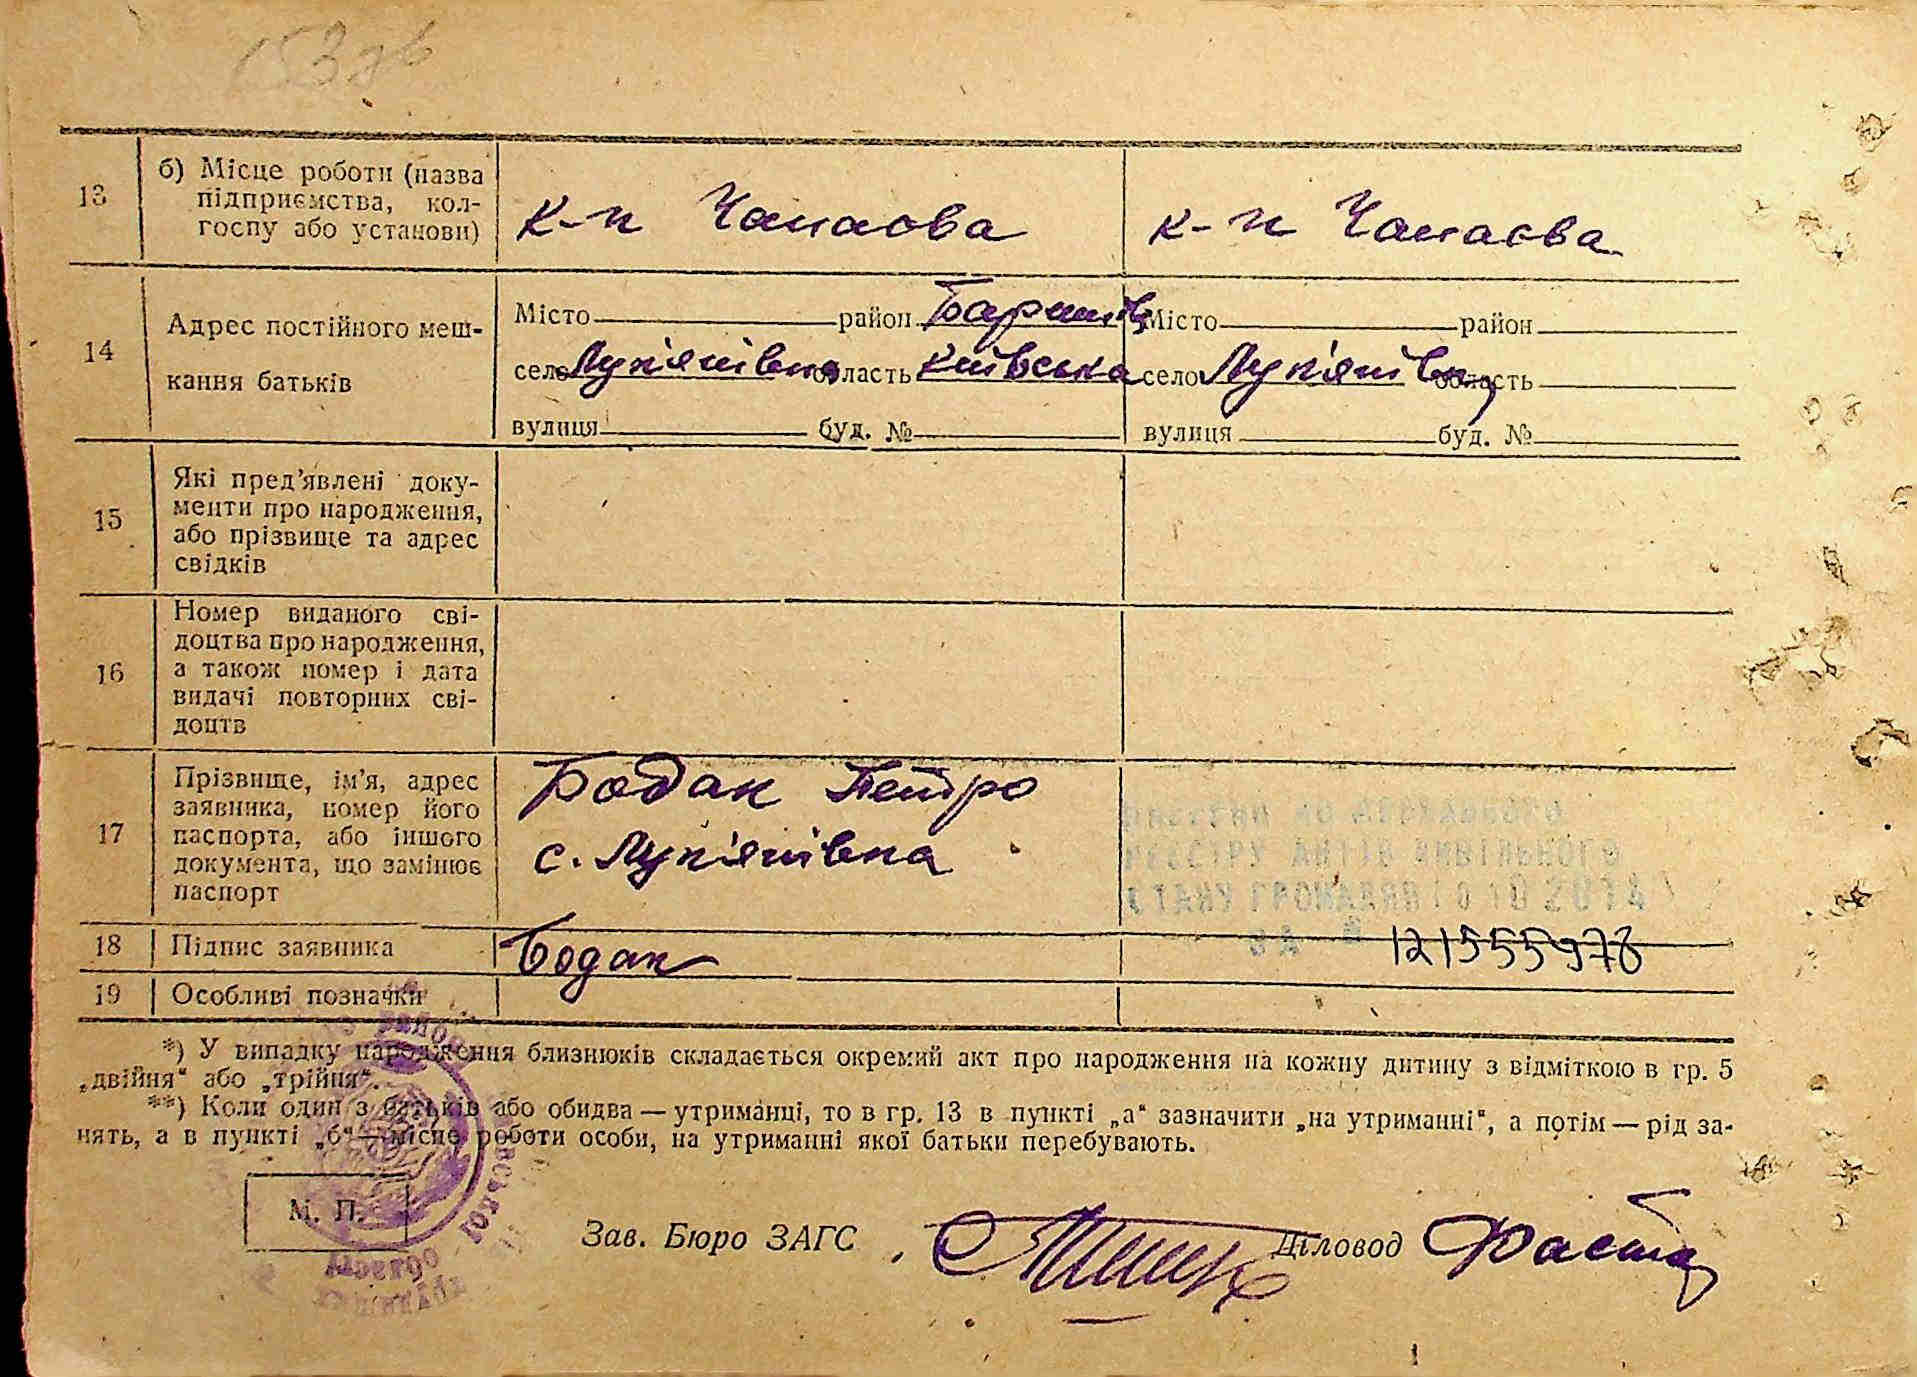 153 зв
13
б) Місце роботи (назва
підприємства, кол-
госпу або установи)
к-п Чапаєва
к-п Чапаєва
14
Адрес постійного меш-
кання батьків
Місто район Баришів
село Лук'янівка область Київська
вулиця буд. №
Місто район
село Лук'янівка область
вулиця буд. №
15
Які пред'явлені доку-
менти про народження,
або прізвище та адрес
свідків
16
Номер виданого сві-
доцтва про народження,
а також номер і дата
видачі повторних сві-
доцтв
17
Прізвище, ім'я, адрес
заявника, номер його
паспорта, або іншого
документа, що замінює
паспорт
Бодак Петро
с. Лук'янівка
ВНЕСЕНИЙ ДО ДЕРЖАВНОГО
РЕЄСТРУ АКТІВ ЦИВІЛЬНОГО
СТАНУ ГРОМАДЯН 10 10 2014
ЗА № 121555978
18 Підпис заявника
Бодак
19 Особливі позначки
*) У випадку народження близнюків складається окремий акт про народження на кожну дитину з відміткою в гр. 5
„двійня“ або „трійня“.
**) Коли один з батьків або обидва — утриманці, то в гр. 13 в пункті „а“ зазначити „на утриманні“, а потім — рід за-
нять, а в пункті „б“ — місце роботи особи, на утриманні якої батьки перебувають.
М. П.
Зав. Бюро ЗАГС
Діловод